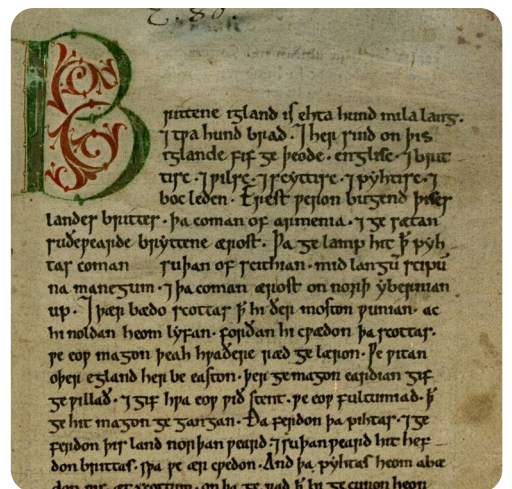 Brittene igland is ehta hund mila lang.
⁊ tƿa hund brad. ⁊ her sind on þis
iglande fif ge þeode. englisc. ⁊ brit
tisc. ⁊ ƿilsc. ⁊ scyttisc. ⁊ pyhtisc. ⁊
boc leden. Erest ƿeron bugend þises
landes brittes. þa coman of armenia. ⁊ ge sætan
suðeƿearde bryttene ærost. Þa ge lamp hit ꝥ pyh
tas coman suþan of scithian. mid langū scipū
na manegum. ⁊ þa coman ærost on norþ ybernian
up. ⁊ þær bædo scottas ꝥ hi ðer moston ƿunian. ac
hi noldan heom lyfan. forðan hi cƿædon þa scottas.
ƿe eoƿ magon þeah hƿaðere ræd ge læron. Ƿe ƿitan
oþer egland her be easton. þer ge magon eardian gif
ge ƿillað. ⁊ gif hƿa eoƿ ƿið stent. ƿe eoƿ fultumiað. ꝥ
ge hit magon ge gangan. Ða ferdon þa pihtas. ⁊ ge
ferdon þis land norþan ƿeard. ⁊ suþan ƿeard hit hef
don brittas. sƿa ƿe ær cƿedon. And þa pyhtas heom abæ
don ƿif æt scottum. on þa ge rad ꝥ hi ge curon heora